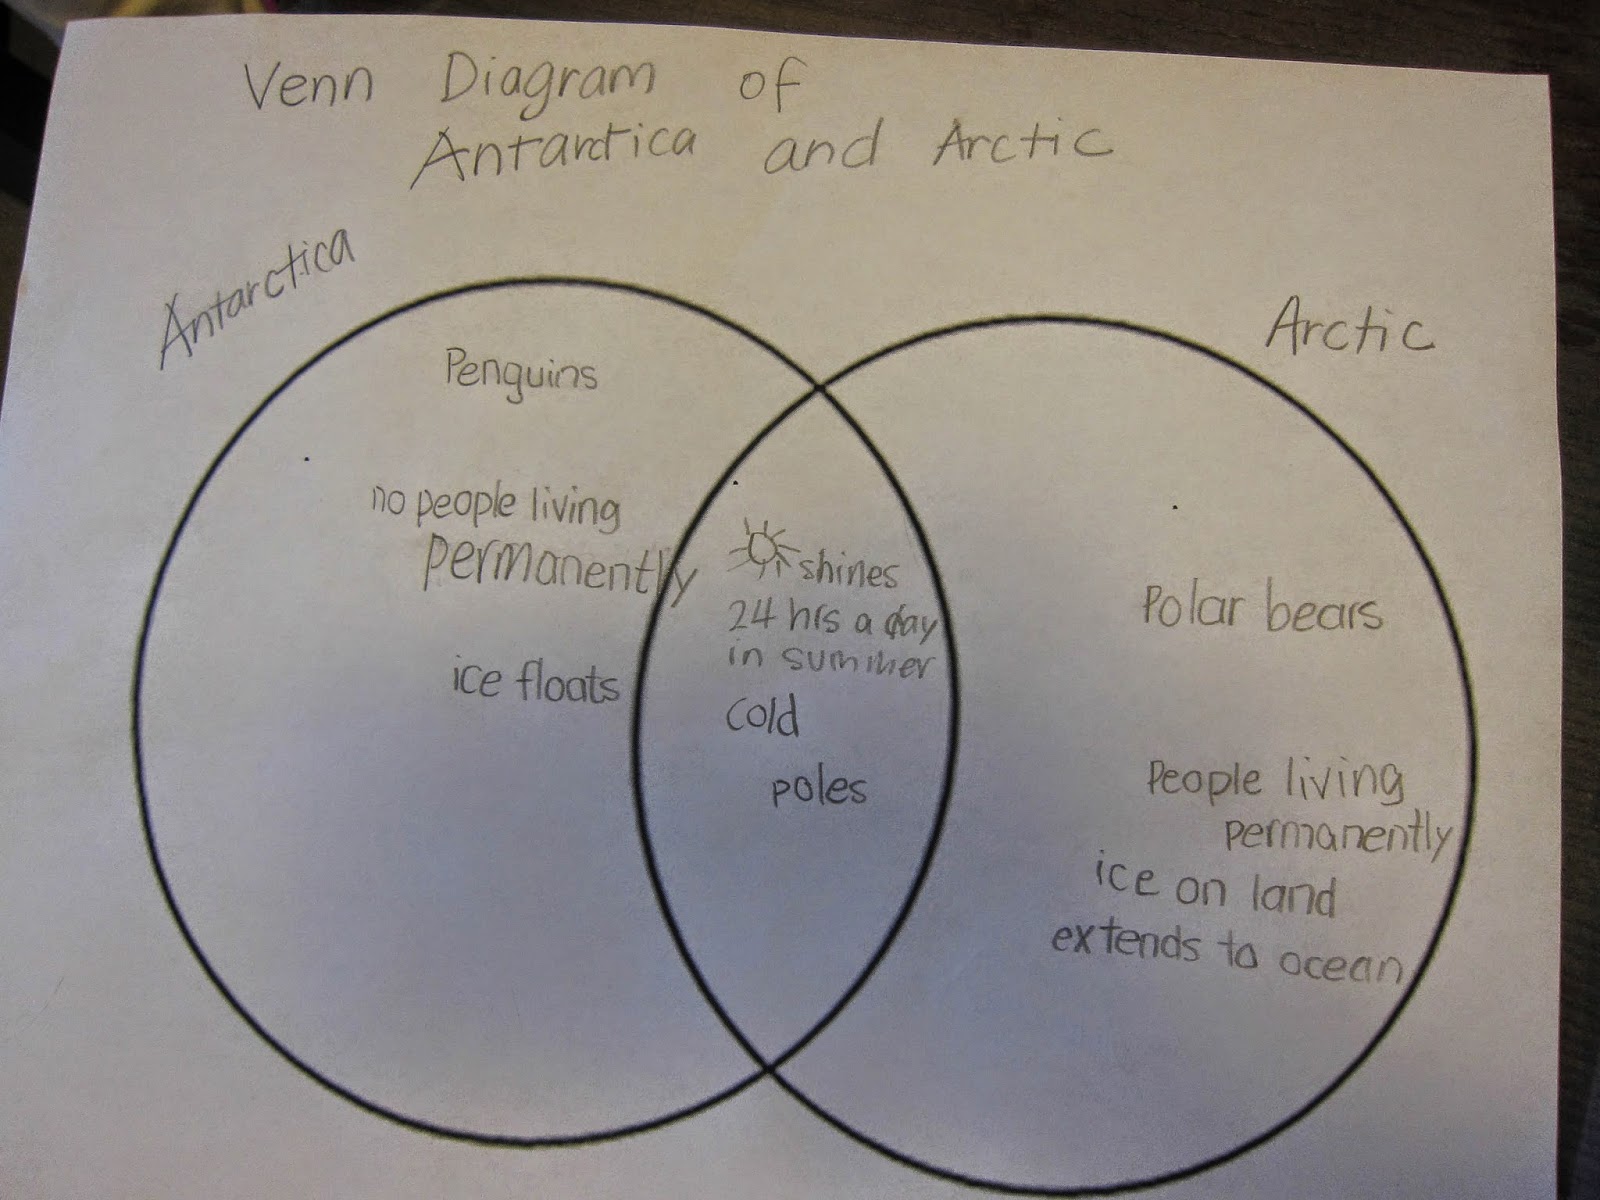 Venn Diagram of
Antarctica and Arctic
Antarctica
Arctic
Penguins
no people living
permanently
ice floats
shines
24 hrs a day
in summer
cold
poles
Polar bears
People living
permanently
ice on land
extends to ocean